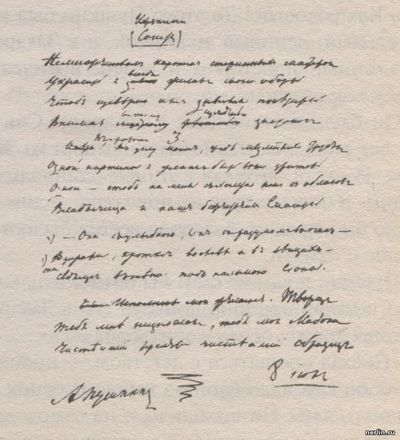 Картина
[Сонет]
Не множеством картин старинных мастеров
Украсить я всегда желал свою обитель
Чтоб суеверно им дивился посетитель
Внимая важному сужденью знатоков
В простом углу моем, средь медленных трудов
Одной картины я желал быть вечно зритель
Одной — чтоб на меня с холста как с облаков
Владычица и наш божественный Спаситель
— Она с улыбкою, Он с разумом в очах —
Взирали, кроткие во славе и в лучах
под пальмою Сиона.
Исполнились мои желания. Творец
Тебя мне ниспослал, тебя моя Мадона
Чистейшей прелести чистейший образец
8 июл
А Пушкин
nerlin.ru